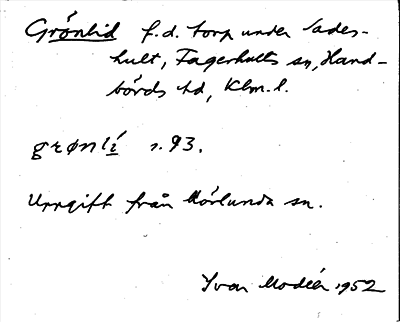 Grönlid f.d. torp under Lades-
hult, Fagerhults sn, Hand-
börds hd, Klm.l.
grønlí s. 93.
Uppgift från Mörlunda sn.
Yvar Modéer 1952